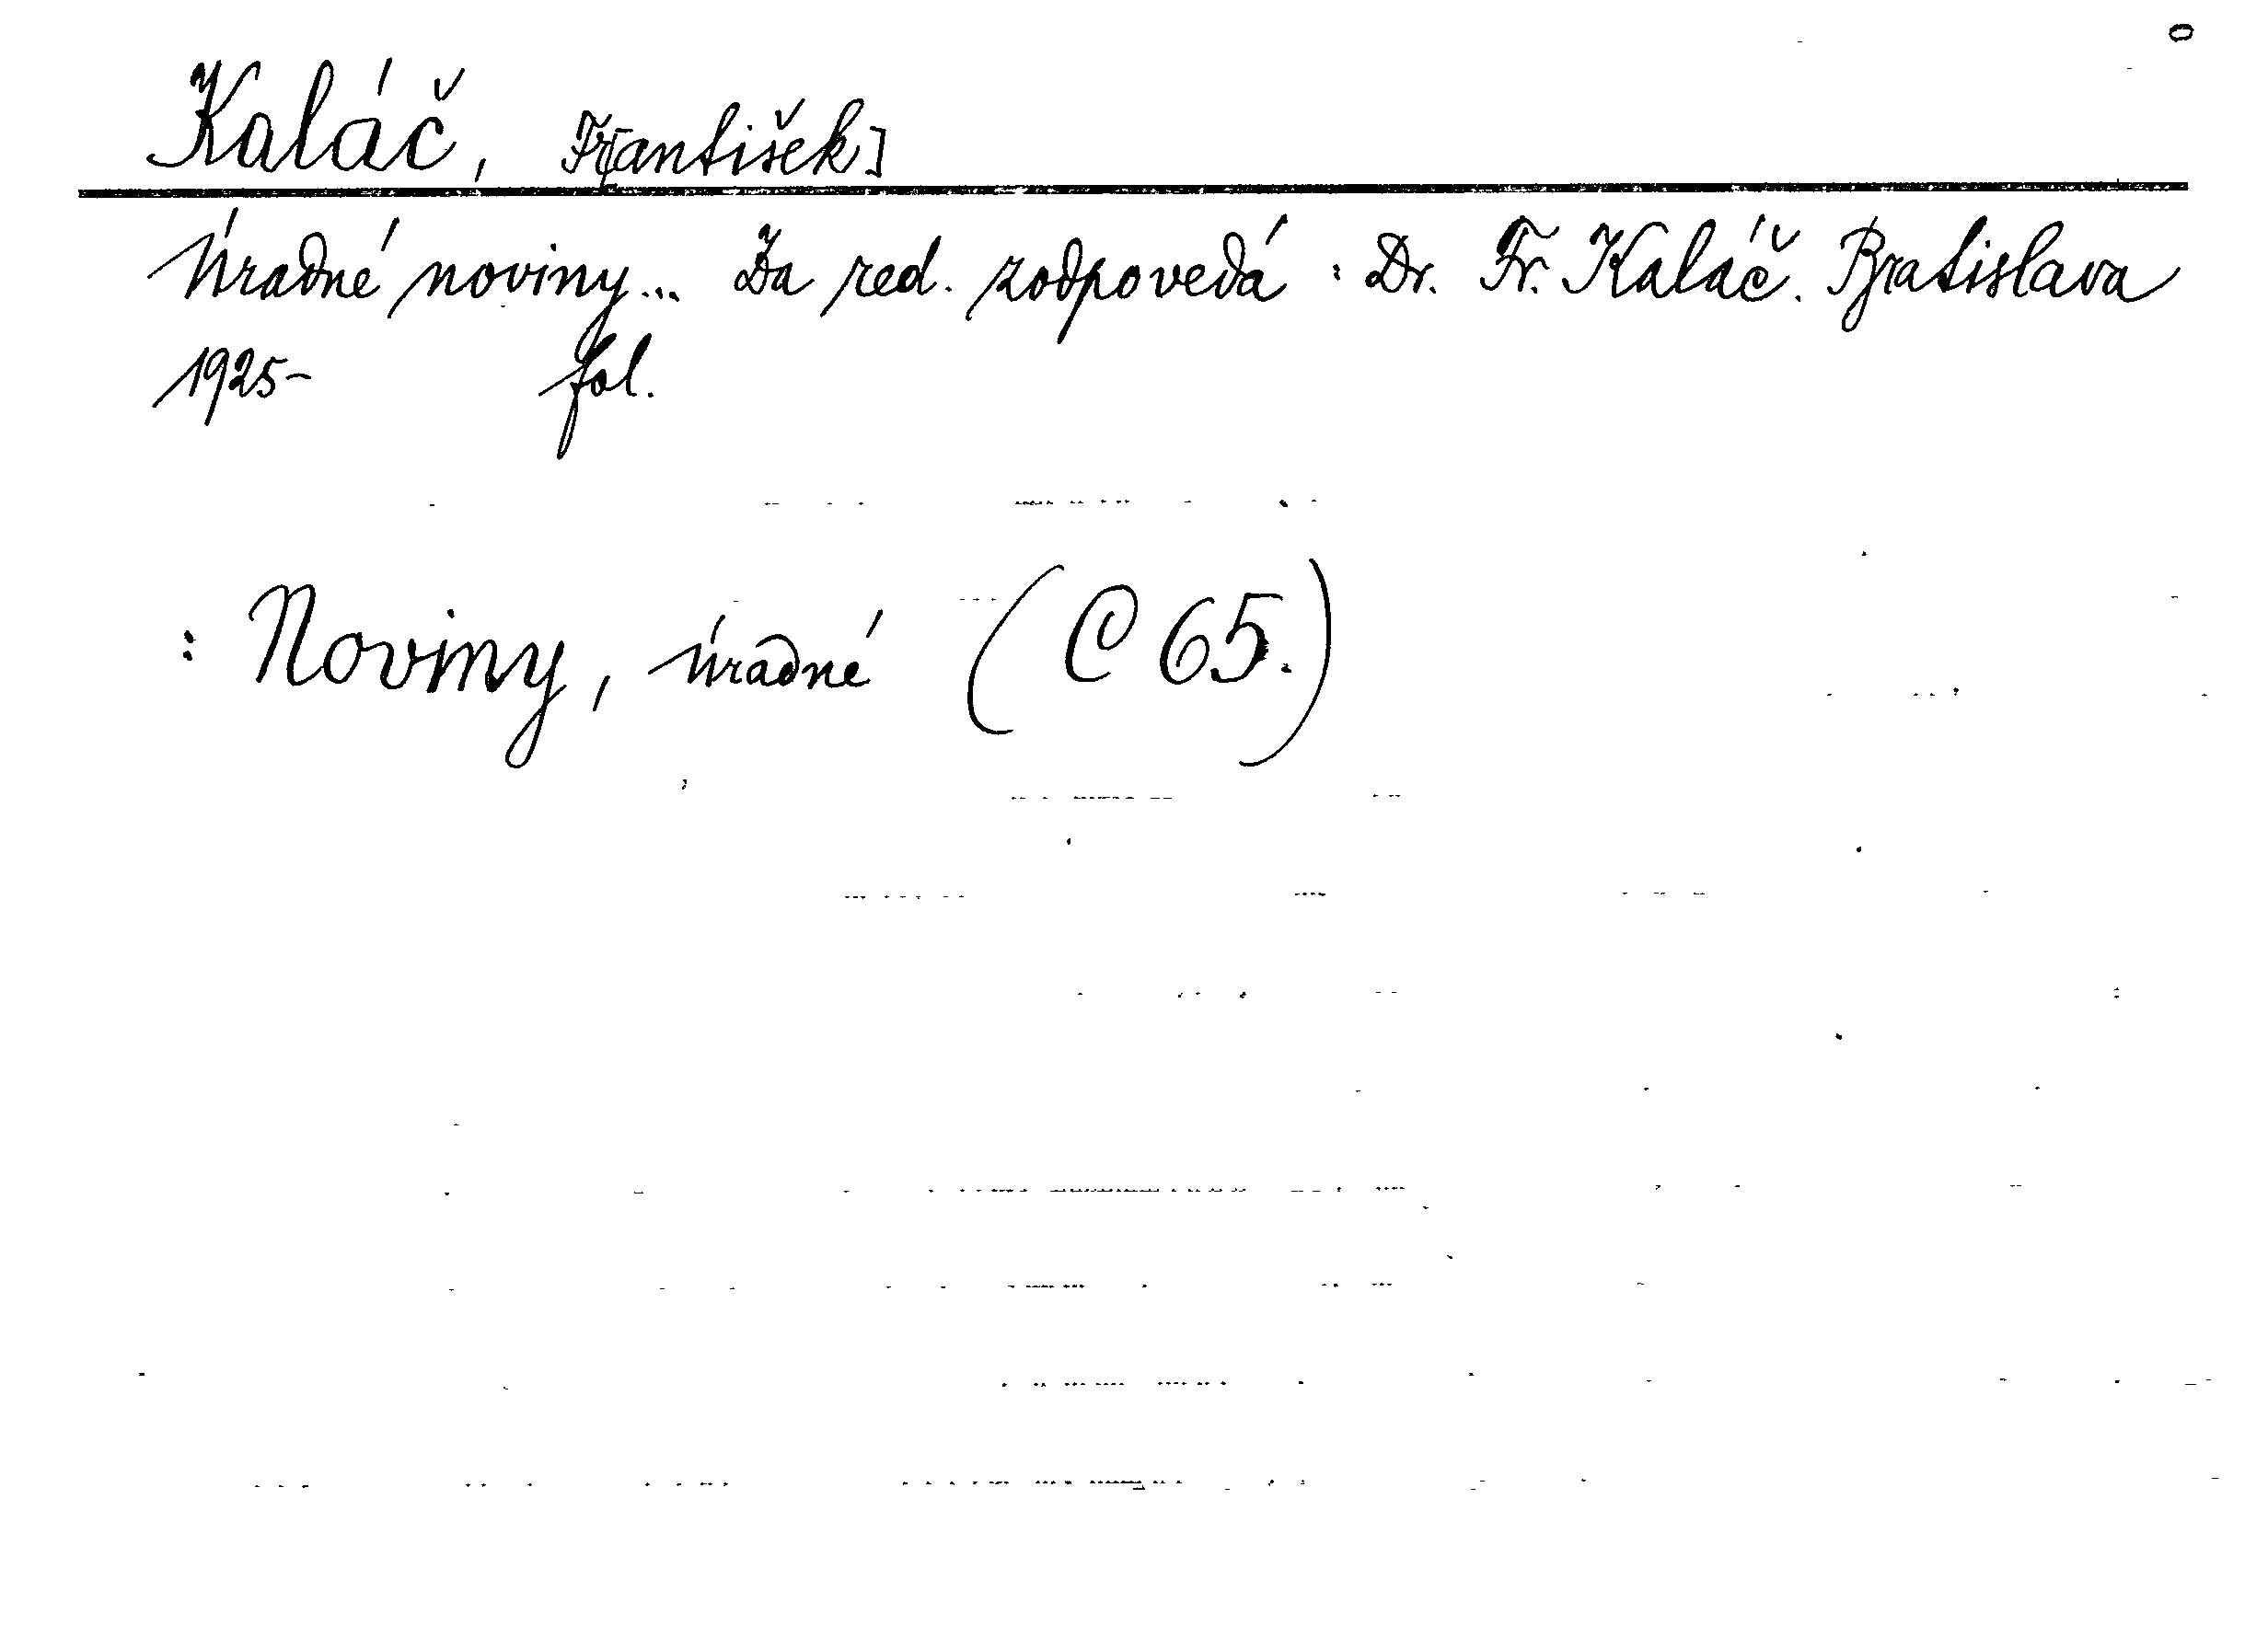 Kaláč, Fr[antišek]
Úradné noviny... Za red. zodpovedá: Dr. Fr. Kaláč. Bratislava
1925- fol.
: Noviny, úradné (C 65.)